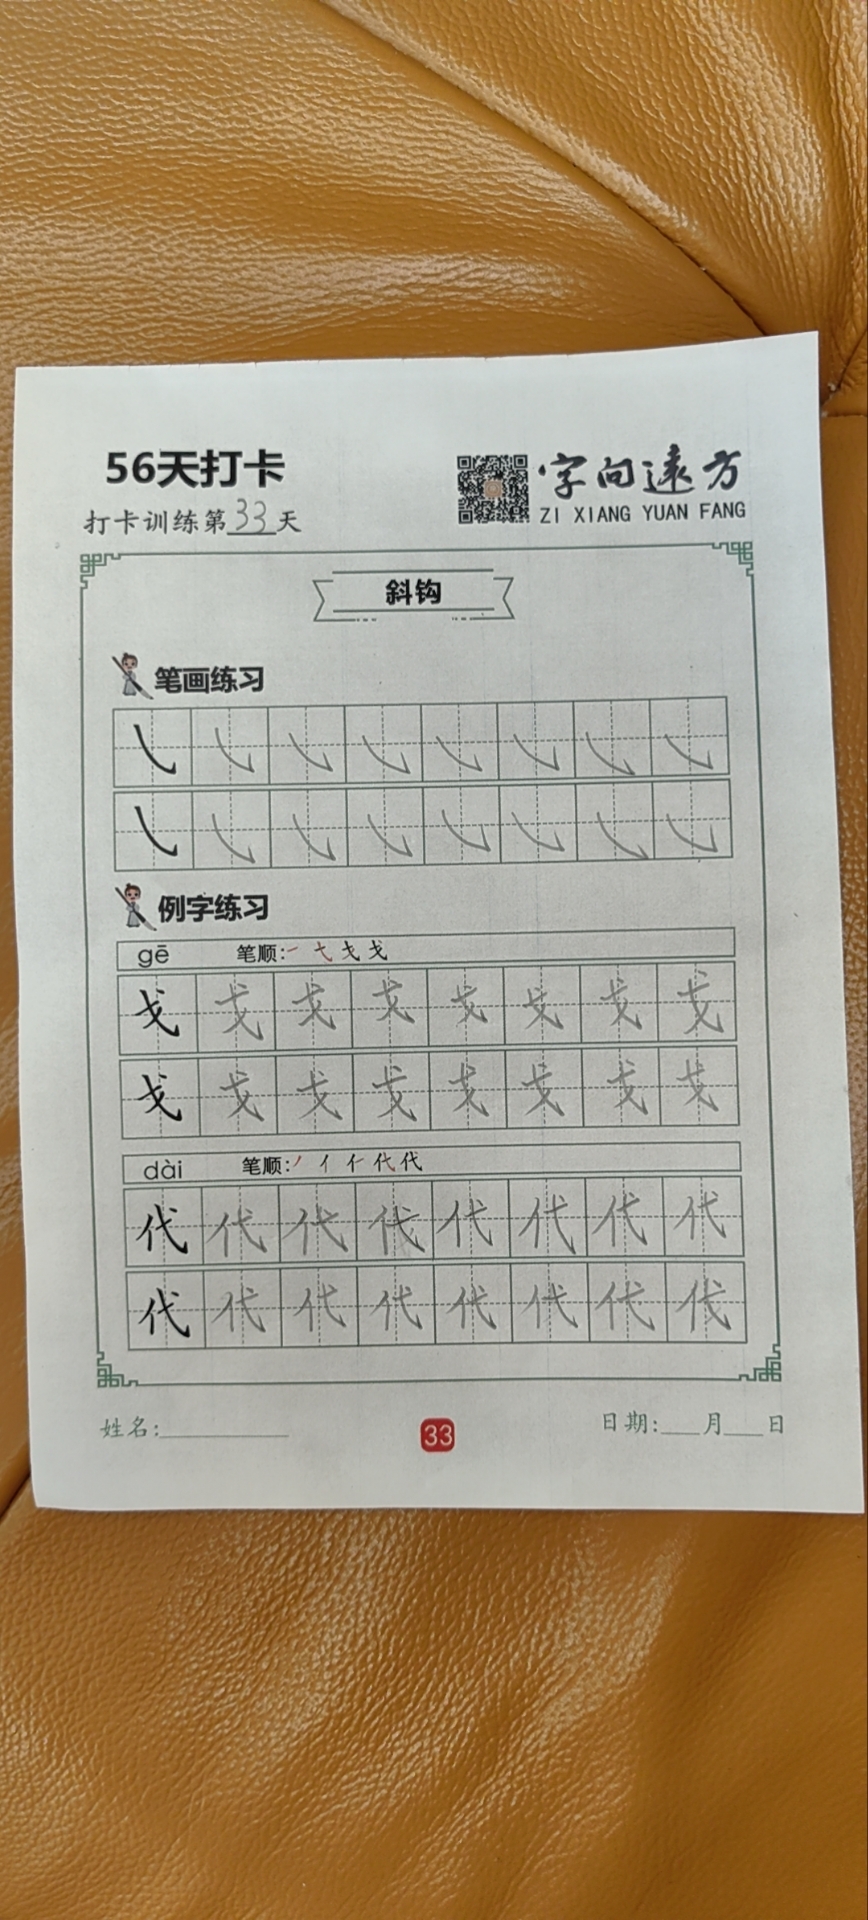 56天打卡
字向遠方
ZI XIANG YUAN FANG
打卡训练第33天
斜钩
笔画练习
㇂ ㇂ ㇂ ㇂ ㇂ ㇂ ㇂ ㇂
㇂ ㇂ ㇂ ㇂ ㇂ ㇂ ㇂ ㇂
例字练习
gē 笔顺:㇀ 弋 戈 戈
戈 戈 戈 戈 戈 戈 戈 戈
戈 戈 戈 戈 戈 戈 戈 戈
dài 笔顺:丿 亻 仁 代 代
代 代 代 代 代 代 代 代
代 代 代 代 代 代 代 代
姓名:
33
日期:___月___日